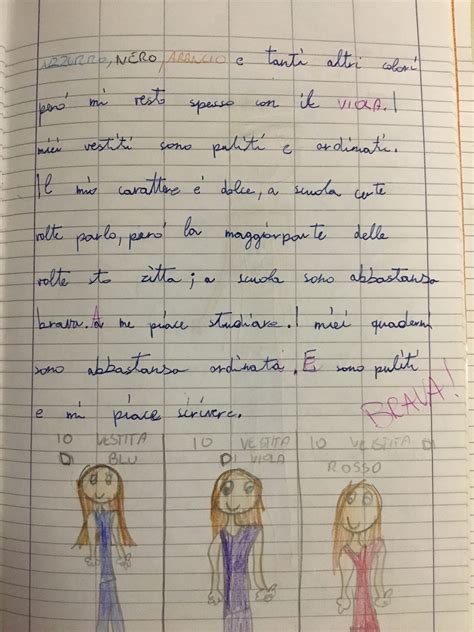 AZZURRO, NERO, ARANCIO e tanti altri colori
però mi vesto spesso con il VIOLA. I
miei vestiti sono puliti e ordinati.
Il mio carattere è dolce, a scuola certe
volte parlo, però la maggiorparte delle
volte sto zitta; a scuola sono abbastansa
brava. A me piace studiare. I miei quaderni
sono abbastansa ordinati. E sono puliti
e mi piace scrivere.
BRAVA!
IO VESTITA DI BLU
IO VESTITA DI VIOLA
IO VESTITA DI ROSSO